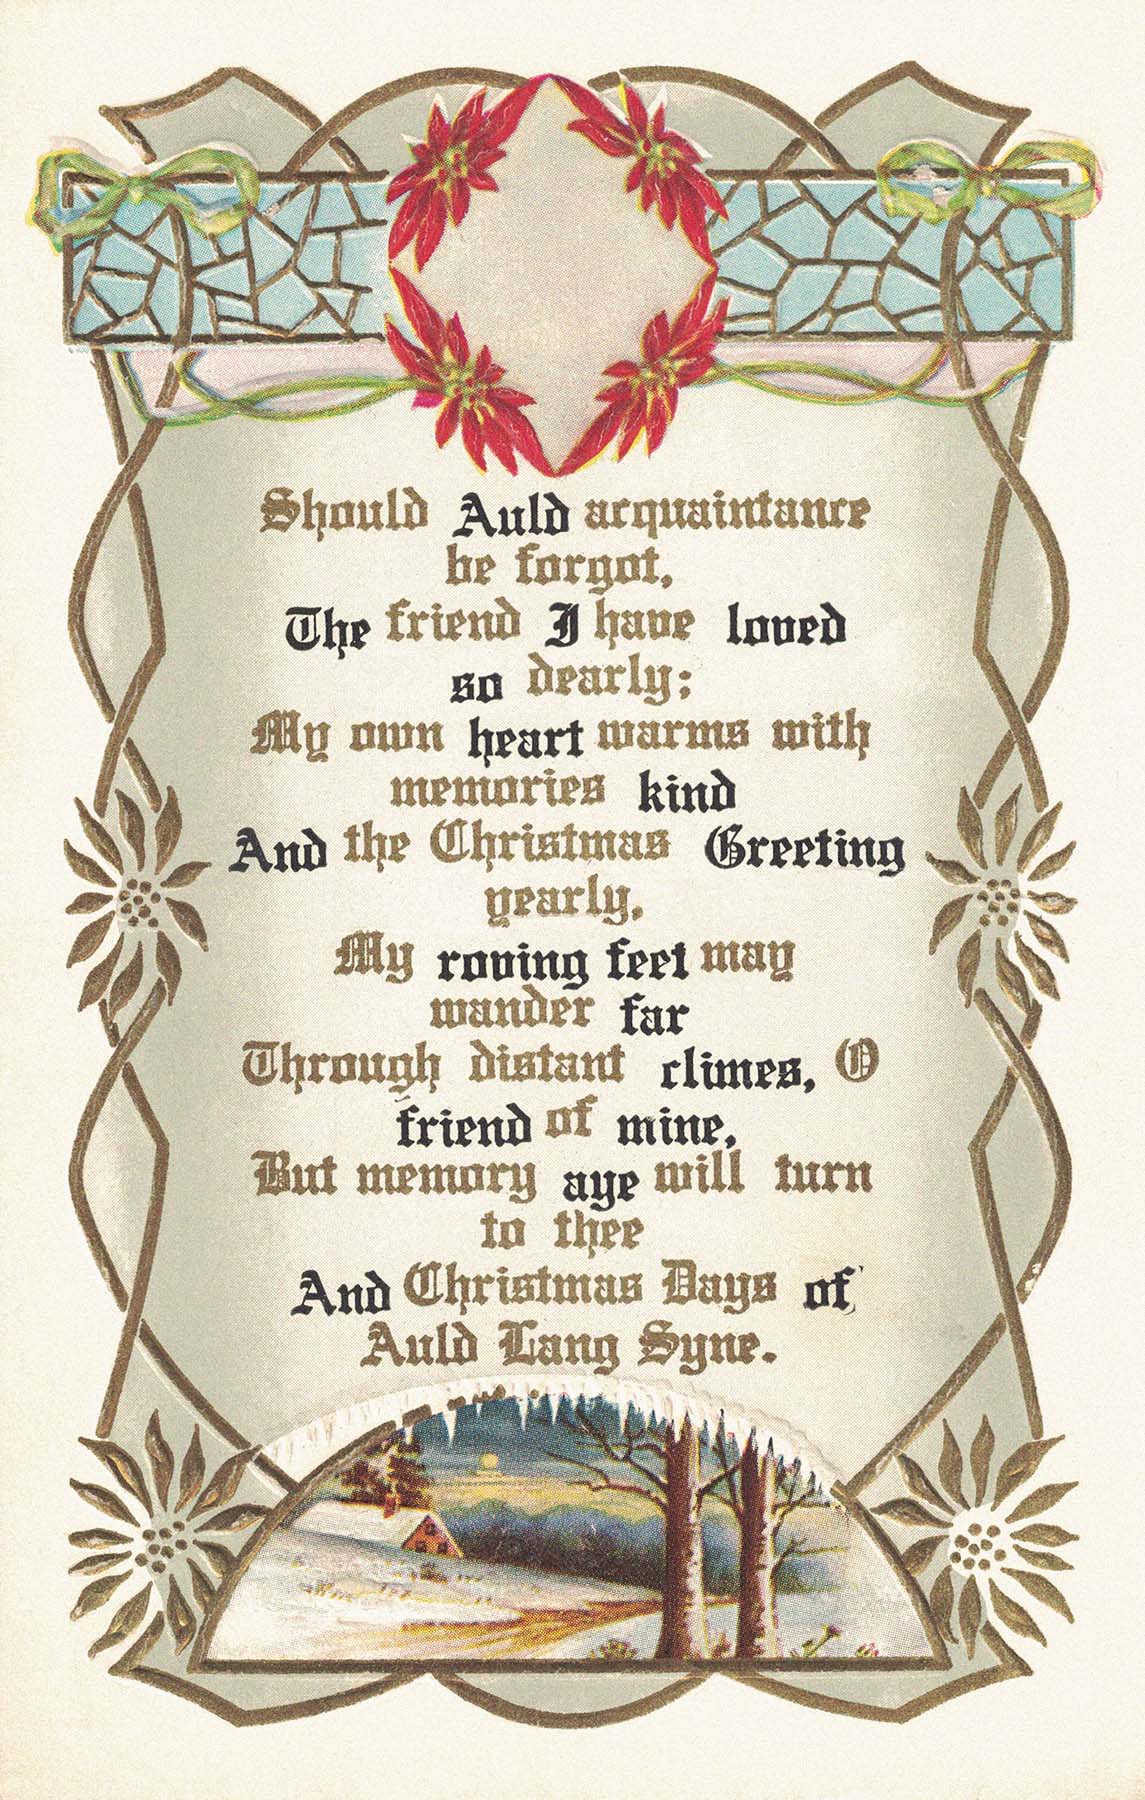 Should Auld acquaintance
be forgot,
The friend I have loved
so dearly;
My own heart warms with
memories kind
And the Christmas Greeting
yearly,
My roving feet may
wander far
Through distant climes, O
friend of mine,
But memory aye will turn
to thee
And Christmas Days of
Auld Lang Syne.